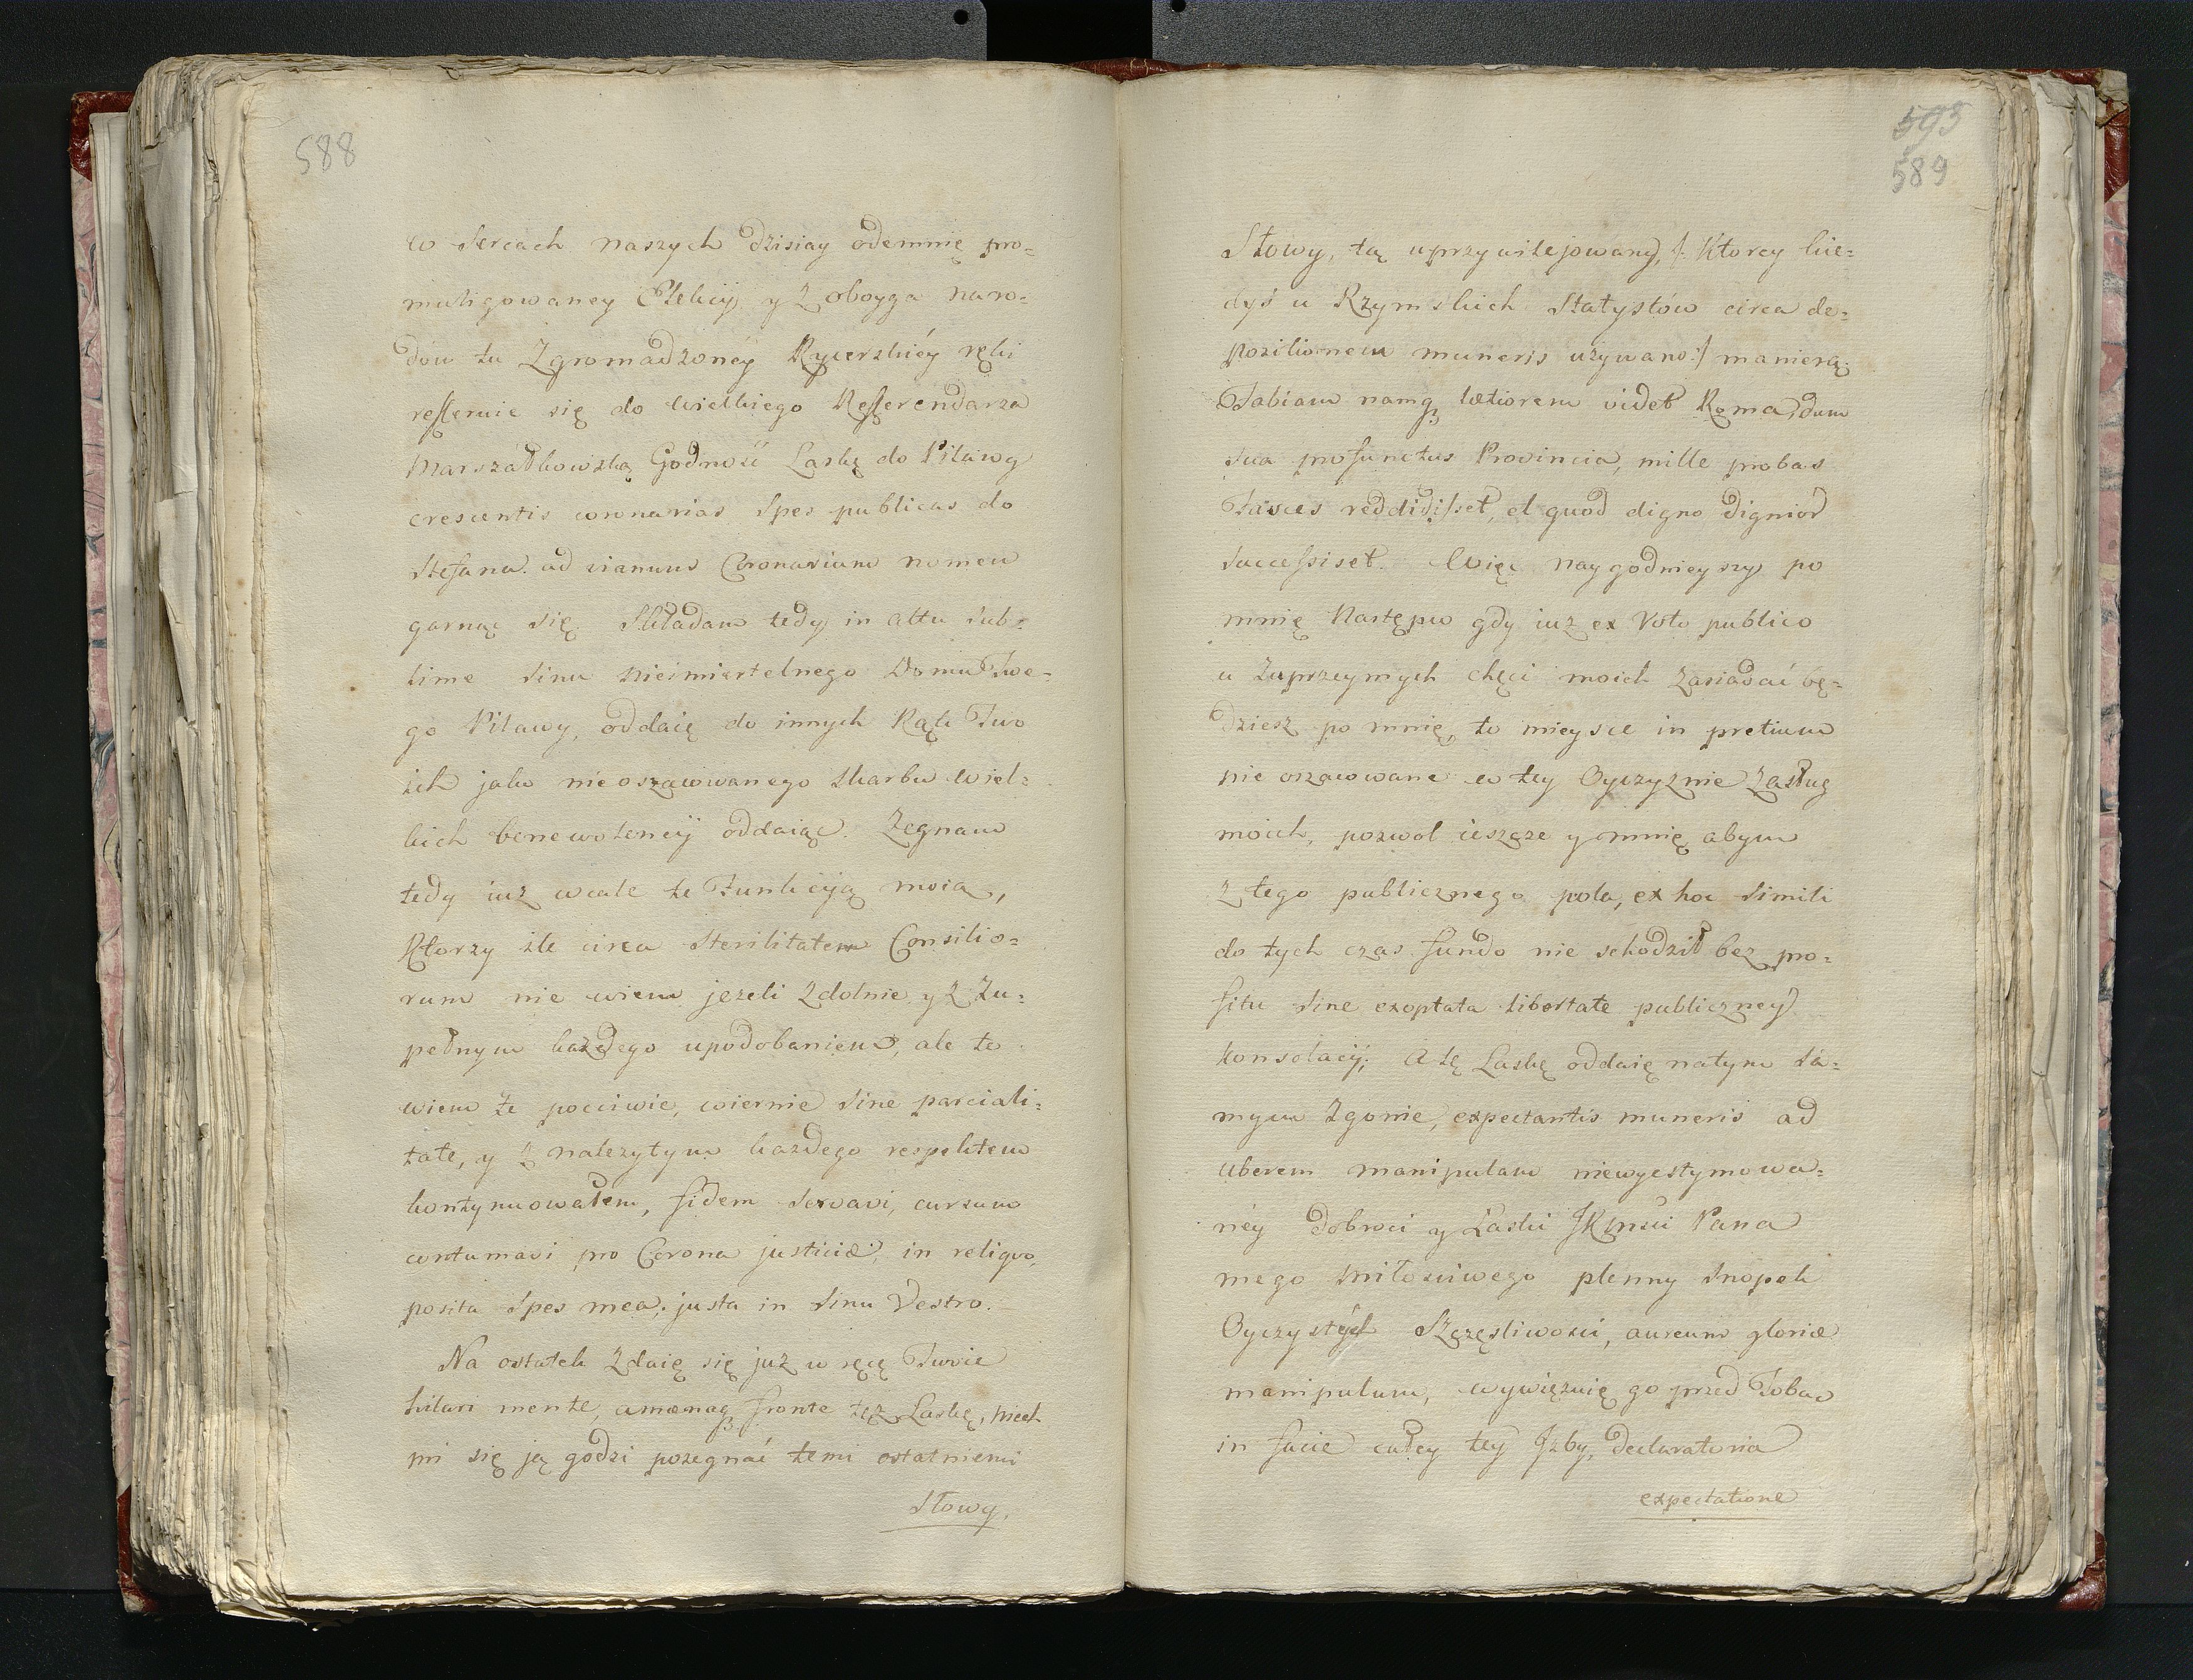 588
w Sercach naszych dzisiay odemnię pro=
muligowaney Elekcij y z oboyga naro=
dow tu Zgromadzonéy Rycerskiéy ręki
referuie się do wielkiego Referendarza
Marszałkowską Godność Laskę do Pilawy
crescentis coronarias Spes publicas do
Stefana ad vianuus Coronarium nomen
garnąc się. Składam tedy in altu Sub=
lime Sinu nieśmiertelnego Domu Twe=
go Pilawy, oddaię do innych Rąk Two
ich jako nieoszacowanego Skarbu wiel=
kich benewolencij oddaiąc. Żegnam
tedy iuż wcale tę Funkcyją moią,
Ktorzy źle circa Sterilitatem Consilio=
rum nie wiem jezeli Zdolnie y z Zu=
pełnym każdego upodobaniem, ale to
wiem że poczciwie, wiernie Sine parciali=
tate, y z nalezytym każdego respektem
kontynuowałem, fidem Servavi, cursum
contumavi pro Corona justiciæ, in reliquo,
posita Spes mea, justa in Sinu Vestro.
Na ostatek Zdaię się już w ręcę Twoie
hilari mente, amænaq fronte tęz Laskę, niech
mi się ją godzi pozegnać temi ostatniemi
Słowy,
593
589
Słowy, tą uprzywilejowaną, /: Ktorey kie=
dyś u Rzymskich Statystów circa de=
pozitionem muneris używano :/ manierą,
Fabiam namq lætiorem videt Roma, dum
sua profunctus Provincia, mille probas
Fasces reddidisset, et quod digno dignior
Successiset. Więc naygodnieyszy po
mnię Następco gdy iuz ex Voto publico
u Zuprzeymych chęci moich Zasiadać bę=
dziesz po mnię, to mieysce in pretium
nie oszacowane w tey Oyczyznie Zasług
moich, pozwol ieszcze y mnię abym
z tego publicznego pola, ex hoc Simili
do tych czas fundo nie schodził bez pro=
fitu Sine exoptata libertate publiczney
konsolacij; A tę Laskę oddaię natym Sa=
mym Zgonie, expectantis muneris ad
uberem manipulam niewyestymowa=
néy Dobroci y Łaski JKMści Pana
mego Miłościwego plenny Snopek
Oyczystych Szczęśliwości, aureum gloriæ
manipulum, wywięzuię go przed Tobą
in facie całey tey Jzby, declaratoria
expectatione